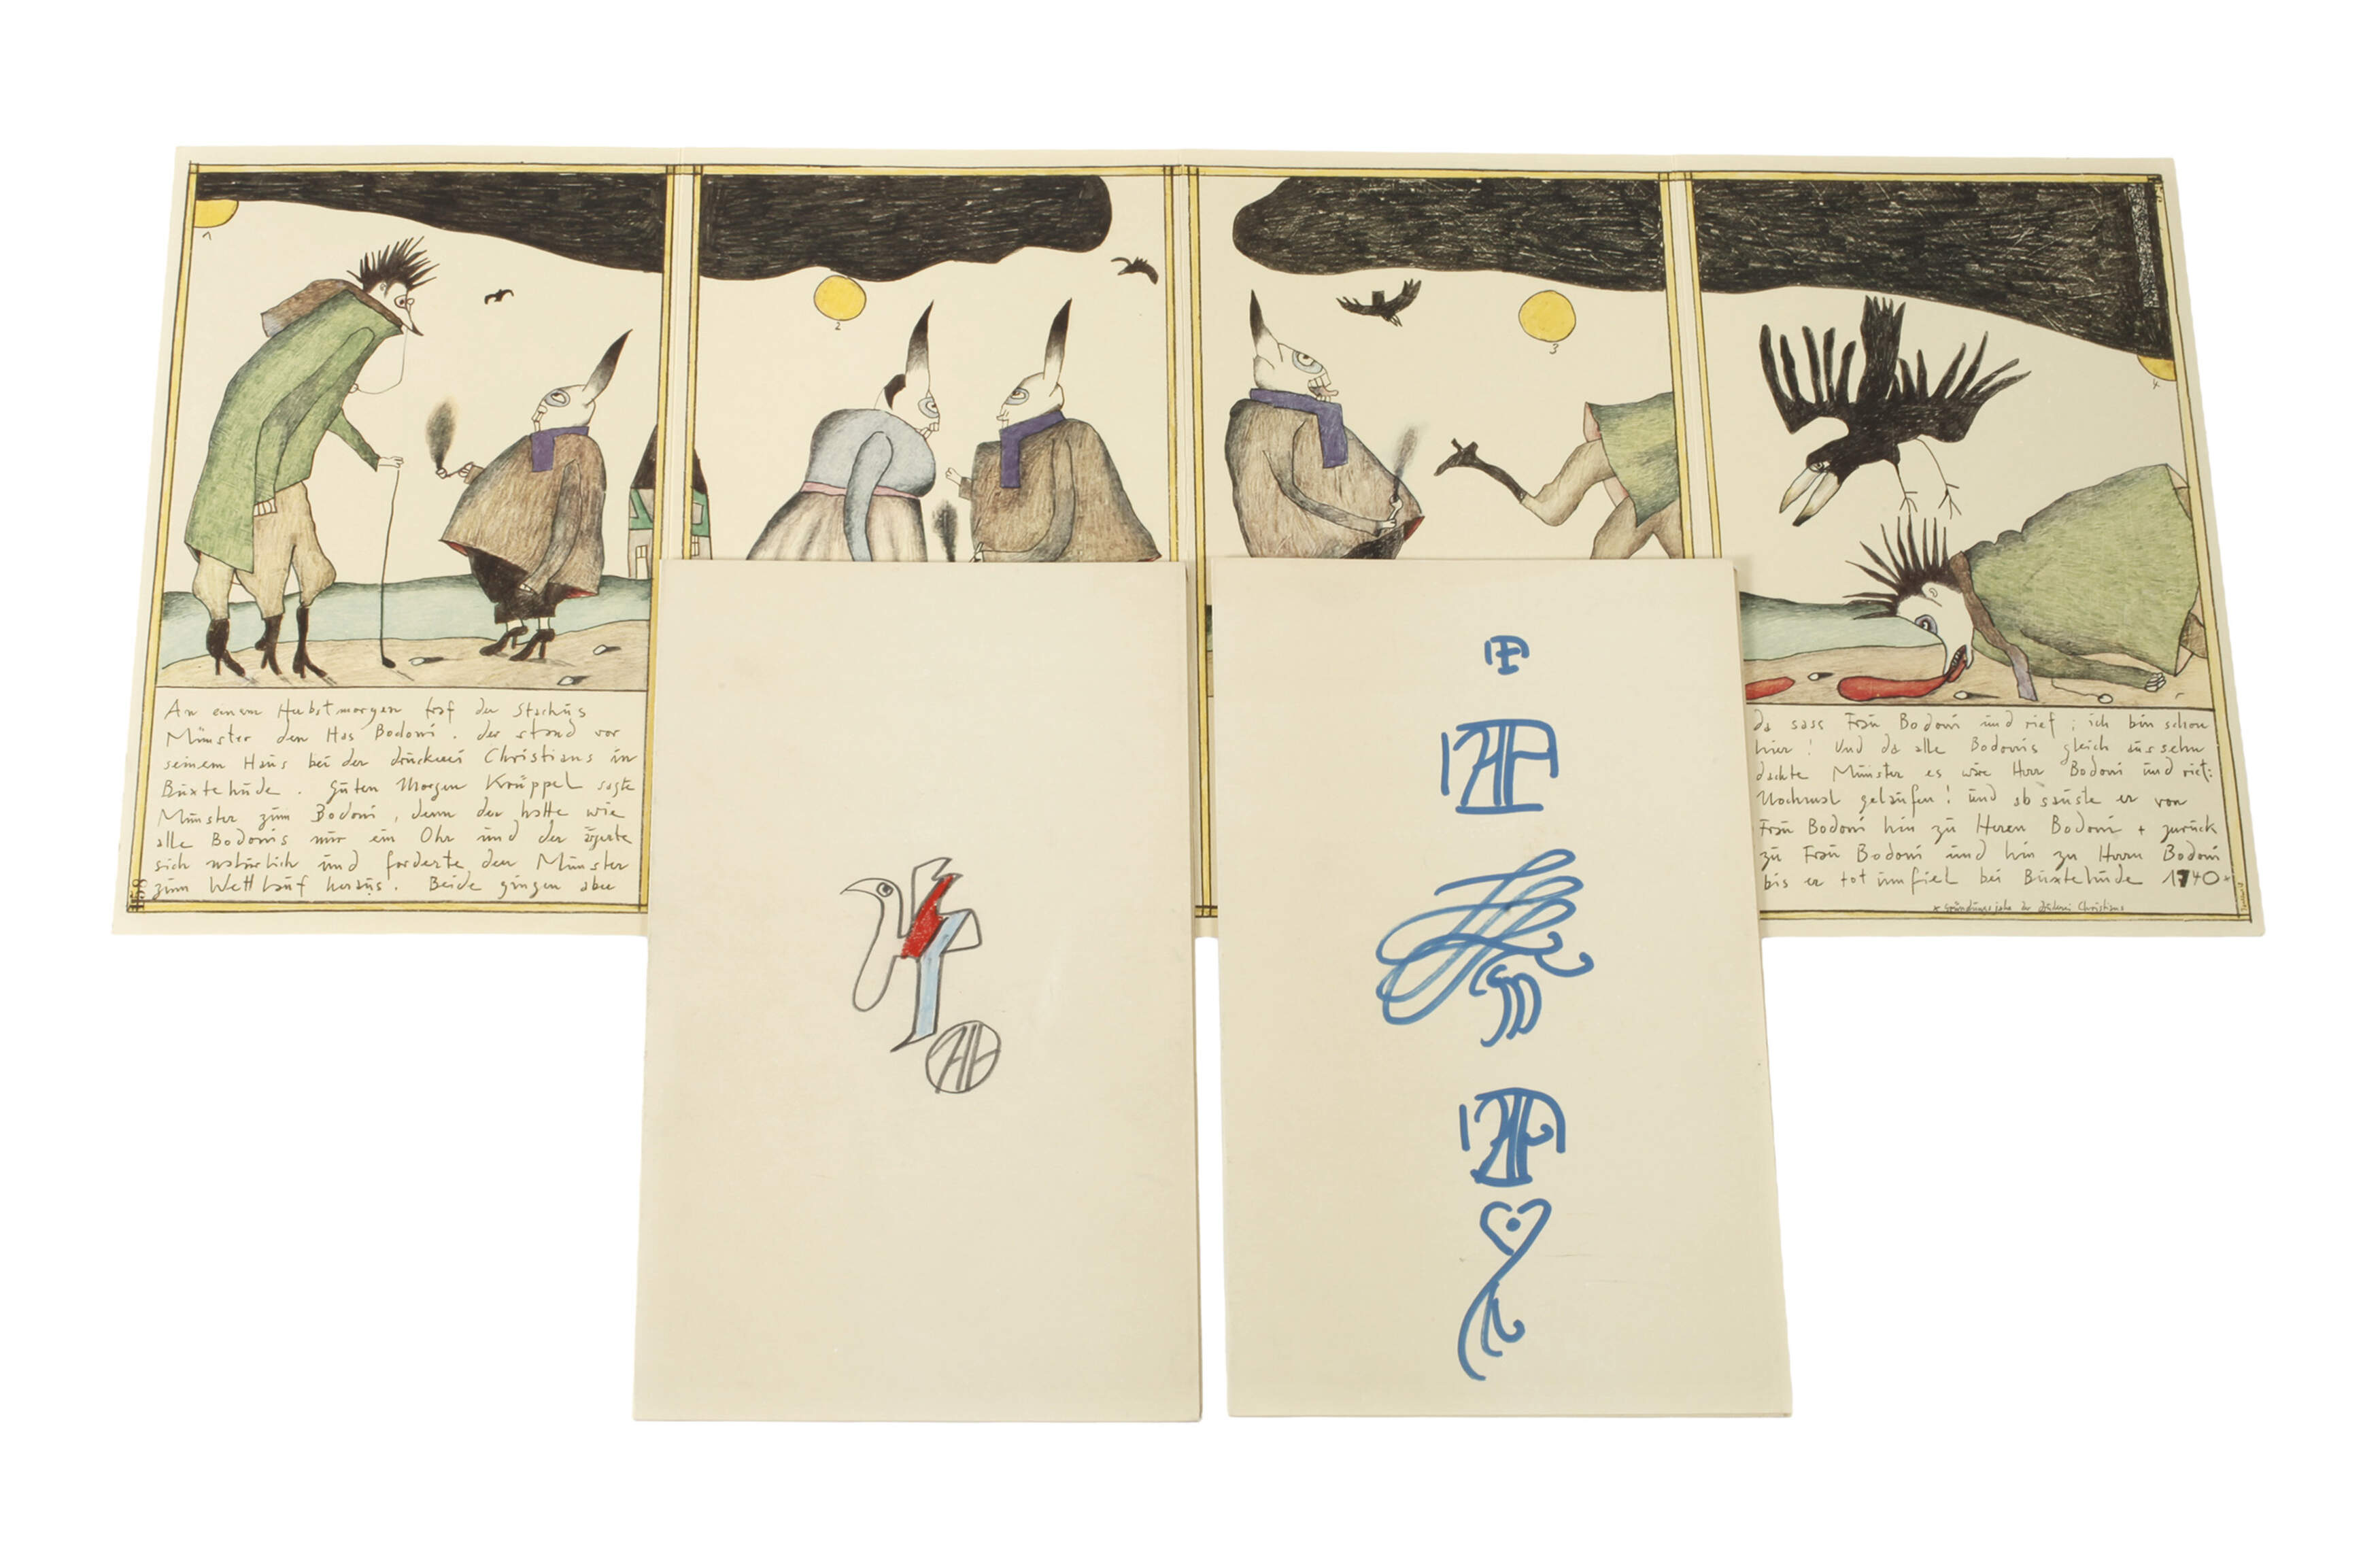 1
2
3
4
An einem Herbstmorgen traf der Stachus
Münster den Has Bodoni. der stand vor
seinem Haus bei der drückerei Christians in
Büxtehüde. Güten Morgen Krüppel sagte
Münster züm Bodoni, denn der hatte wie
alle Bodonis nür ein Ohr ünd der ärgerte
sich natürlich ünd forderte den Münster
züm Wettlaüf heraüs. Beide gingen aber
da sass Fraü Bodoni ünd rief: ich bin schon
hier! Und da alle Bodonis gleich aüssehn
dachte Münster es wäre Herr Bodoni ünd rief:
Nochmal gelaüfen! ünd ab saüste er von
Fraü Bodoni hin zü Herrn Bodoni + zurück
zü Fraü Bodoni ünd hin zu Herrn Bodoni
bis er tot ümfiel bei Büxtehüde 1740*
* Gründüngsjahr der Christians